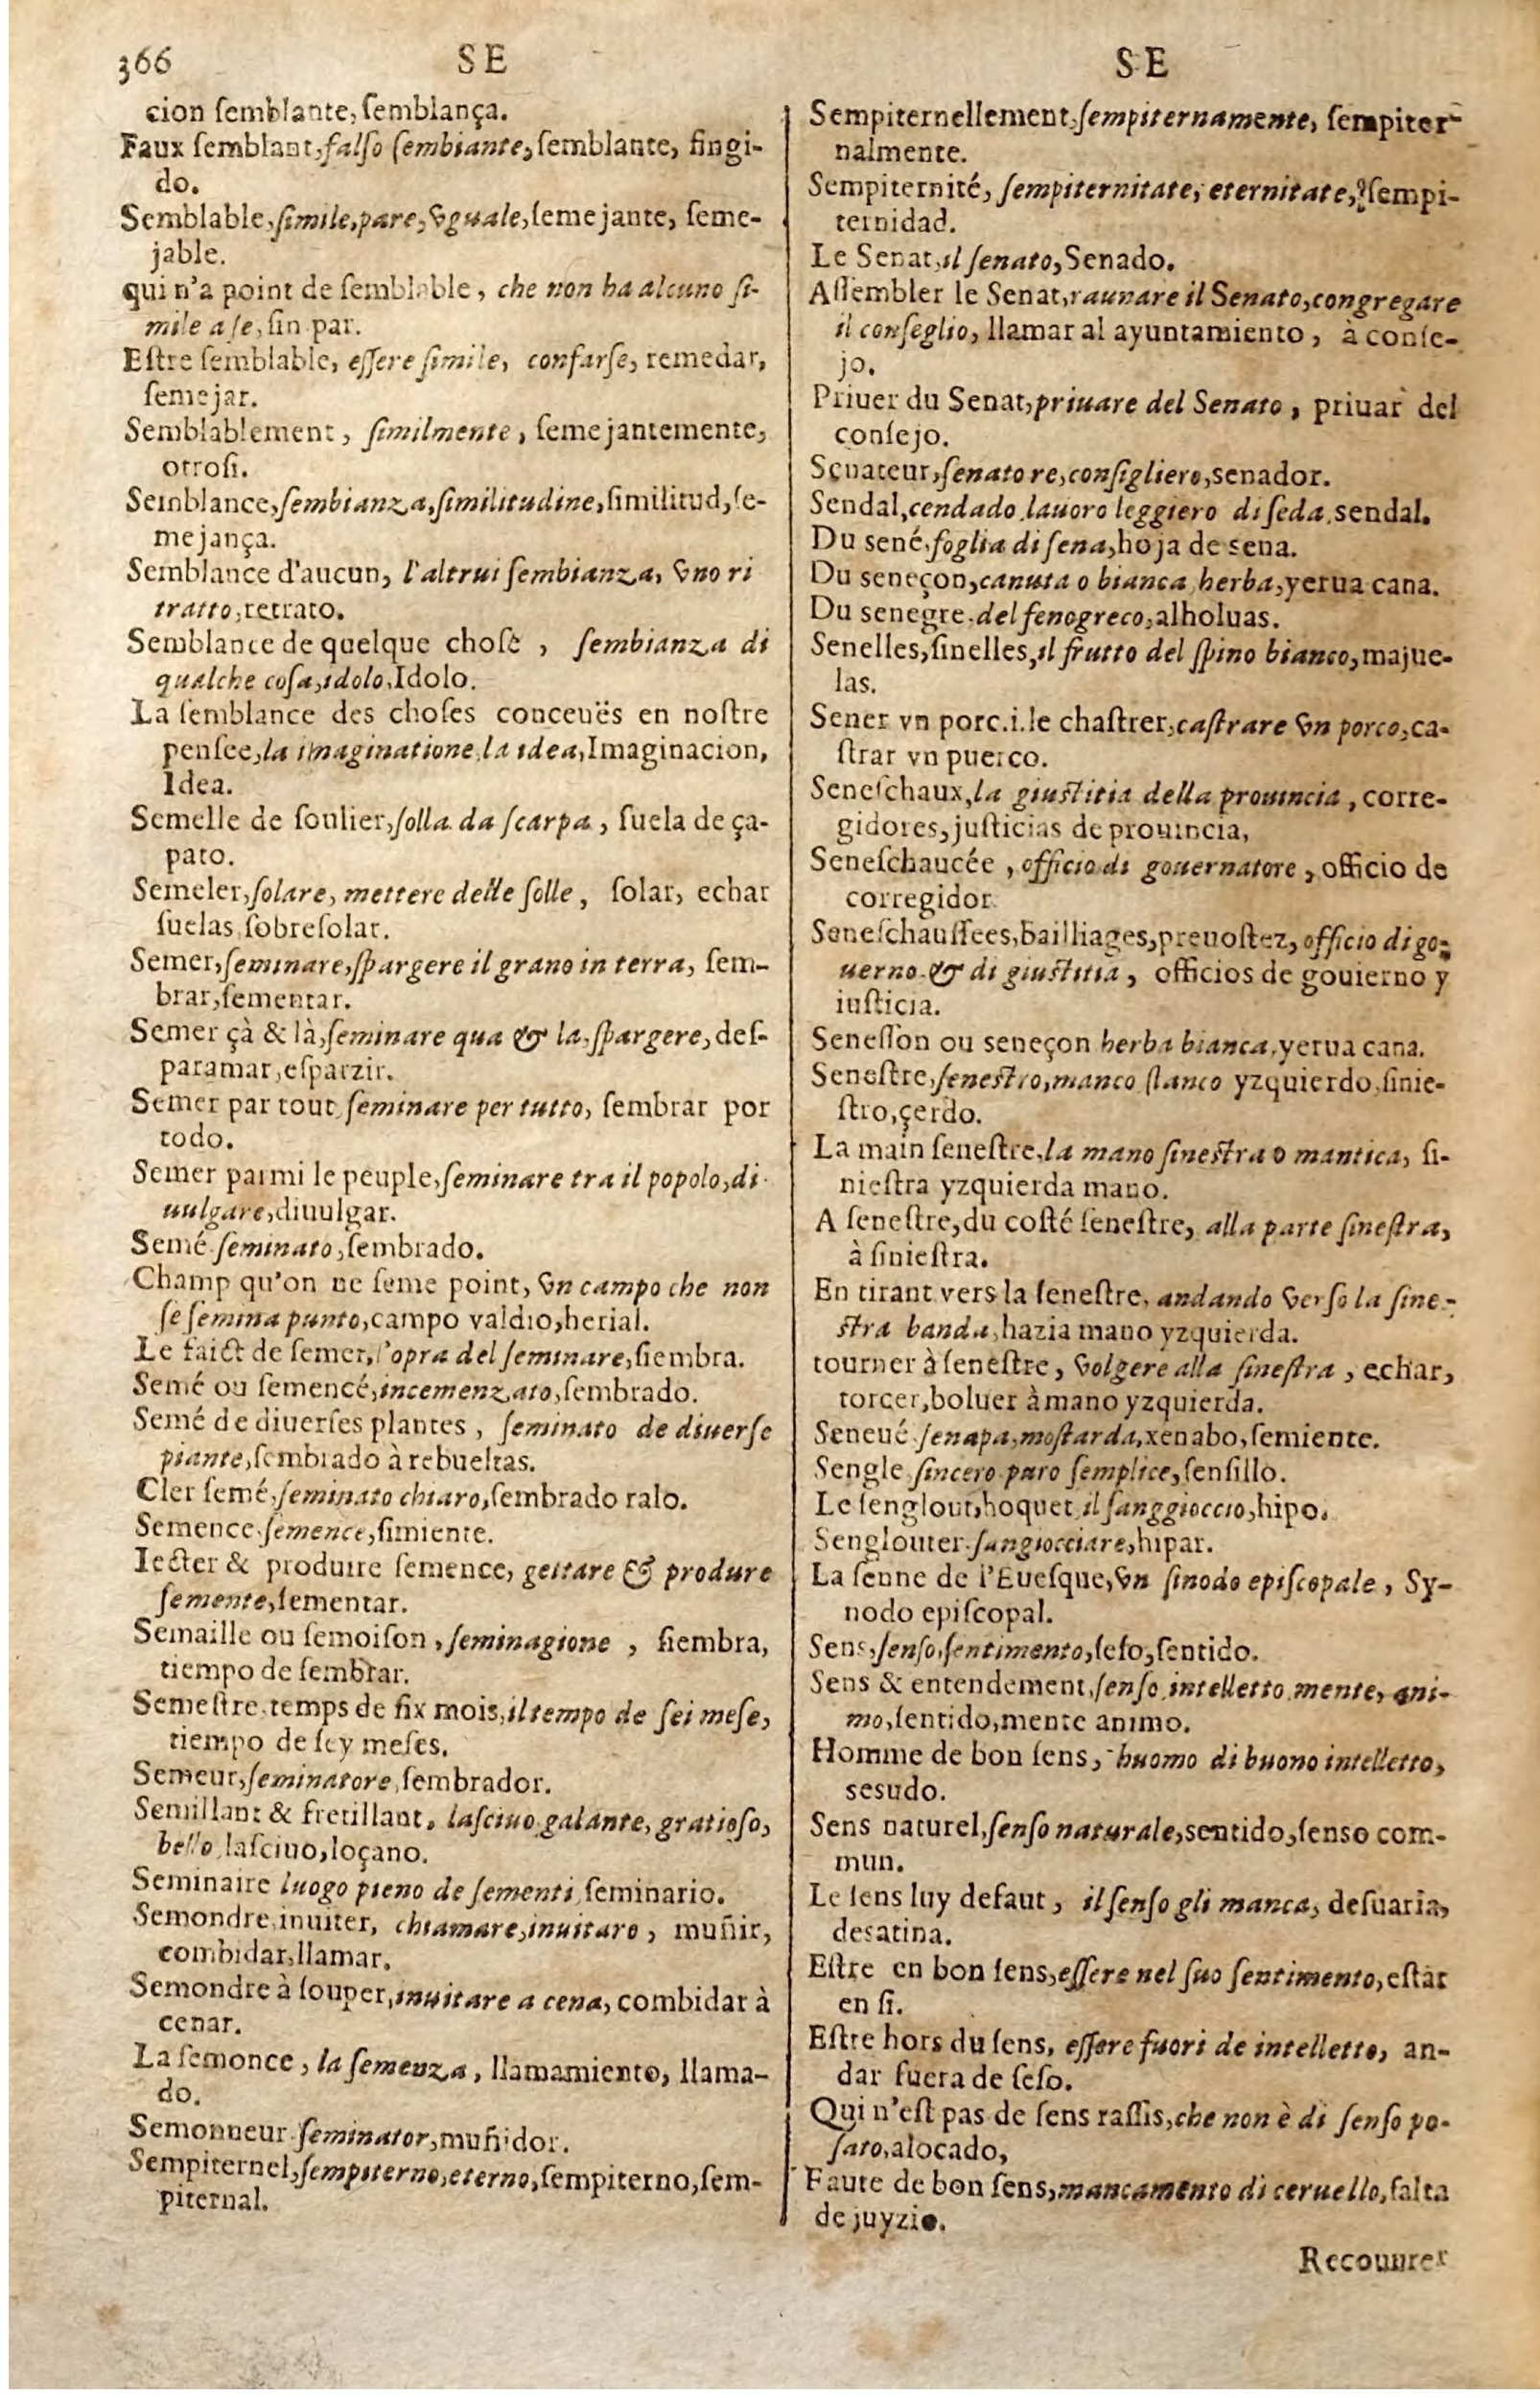 366 SE
cion ſemblante, ſemblança.
Faux ſemblant, falſo ſembiante, ſemblante, fingi-
do.
Semblable, ſimile, pare, vguale, ſemejante, ſeme-
jable.
qui n'a point de ſemblable, che non ha alcuno ſi-
mile a ſe, ſin par.
Eſtre ſemblable, eſſere ſimile, confarſe, remedar,
ſemejar.
Semblablement, ſimilmente, ſemejantemente,
otroſi.
Semblance, ſembianza, ſimilitudine, ſimilitud, ſe-
mejança.
Semblance d'aucun, l'altrui ſembianza, vno ri
tratto, retrato.
Semblance de quelque choſe, ſembianza di
qualche coſa, idolo, Idolo.
La ſemblance des choſes conceuës en noſtre
penſee, la imaginatione, la idea, Imaginacion,
Idea.
Semelle de ſoulier, ſolla da ſcarpa, ſuela de ça-
pato.
Semeler, ſolare, mettere delle ſolle, ſolar, echar
ſuelas, ſobreſolar.
Semer, ſeminare, ſpargere il grano in terra, ſem-
brar, ſementar.
Semer çà & là, ſeminare qua & la, ſpargere, deſ-
paramar, eſparzir.
Semer par tout, ſeminare per tutto, ſembrar por
todo.
Semer parmi le peuple, ſeminare tra il popolo, di-
uulgare, diuulgar.
Semé, ſeminato, ſembrado.
Champ qu'on ne ſeme point, vn campo che non
ſe ſemina punto, campo valdio, herial.
Le faict de ſemer, l'opra del ſeminare, ſiembra.
Semé ou ſemencé, incemenzato, ſembrado.
Semé de diuerſes plantes, ſeminato de diuerſe
piante, ſembrado à rebueltas.
Cler ſemé, ſeminato chiaro, ſembrado ralo.
Semence, ſemence, ſimiente.
Iecter & produire ſemence, gettare & produre
ſemente, ſementar.
Semaille ou ſemoiſon, ſeminagione, ſiembra,
tiempo de ſembrar.
Semeſtre, temps de ſix mois, il tempo de ſei meſe,
tiempo de ſey meſes.
Semeur, ſeminatore, ſembrador.
Semillant & fretillant, laſciuo, galante, gratioſo,
bello, laſciuo, loçano.
Seminaire luogo pieno de ſementi, ſeminario.
Semondre, inuiter, chiamare, inuitare, muñir,
combidar, llamar.
Semondre à ſouper, inuitare a cena, combidar à
cenar.
La ſemonce, la ſemenza, llamamiento, llama-
do.
Semonneur, ſeminator, muñidor.
Sempiternel, ſempiterno, eterno, ſempiterno, ſem-
piternal.
SE
Sempiternellement, ſempiternamente, ſempiter-
nalmente.
Sempiternité, ſempiternitate, eternitate, ſempi-
ternidad.
Le Senat, il ſenato, Senado.
Aſſembler le Senat, raunare il Senato, congregare
il conſeglio, llamar al ayuntamiento, à conſe-
jo.
Priuer du Senat, priuare del Senato, priuar del
conſejo.
Senateur, ſenatore, conſigliero, senador.
Sendal, cendado, lauoro leggiero di ſeda, sendal.
Du sené, foglia di ſena, hoja de sena.
Du seneçon, canuta o bianca herba, yerua cana.
Du senegre, del fenogreco, alholuas.
Senelles, ſinelles, il frutto del ſpino bianco, majue-
las.
Sener vn porc.i.le chaſtrer, caſtrare vn porco, ca-
ſtrar vn puerco.
Seneſchaux, la giuſtitia della prouincia, corre-
gidores, juſticias de prouincia,
Seneſchaucée, officio di gouernatore, officio de
corregidor.
Seneſchauſſees, bailliages, preuoſtez, officio di go-
uerno & di giuſtitia, officios de gouierno y
iuſticia.
Seneſſon ou seneçon herba bianca, yerua cana.
Seneſtre, ſeneſtro, manco ſtanco yzquierdo, ſinie-
ſtro, çerdo.
La main ſeneſtre, la mano ſineſtra o mantica, ſi-
nieſtra yzquierda mano.
A ſeneſtre, du coſté ſeneſtre, alla parte ſineſtra,
à ſinieſtra.
En tirant vers la ſeneſtre, andando verſo la ſine-
ſtra banda, hazia mano yzquierda.
tourner à ſeneſtre, volgere alla ſineſtra, echar,
torcer, boluer à mano yzquierda.
Seneué, ſenapa, moſtarda, xenabo, ſemiente.
Sengle, ſincero puro ſemplice, ſenſillo.
Le ſenglout, hoquet, il ſanggioccio, hipo.
Senglouter, ſangiocciare, hipar.
La ſenne de l'Eueſque, vn ſinodo epiſcopale, Sy-
nodo epiſcopal.
Sens, ſenſo, ſentimento, ſeſo, ſentido.
Sens & entendement, ſenſo, intelletto, mente, ani-
mo, ſentido, mente animo.
Homme de bon ſens, huomo di buono intelletto,
sesudo.
Sens naturel, ſenſo naturale, sentido, ſenso com-
mun.
Le ſens luy defaut, il ſenſo gli manca, deſuaria,
desatina.
Eſtre en bon ſens, eſſere nel ſuo ſentimento, eſtar
en ſi.
Eſtre hors du ſens, eſſere fuori de intelletto, an-
dar fuera de ſeſo.
Qui n'eſt pas de ſens raſſis, che non è di ſenſo po-
ſato, alocado,
Faute de bon ſens, mancamento di ceruello, falta
de juyzio.
Recouurer